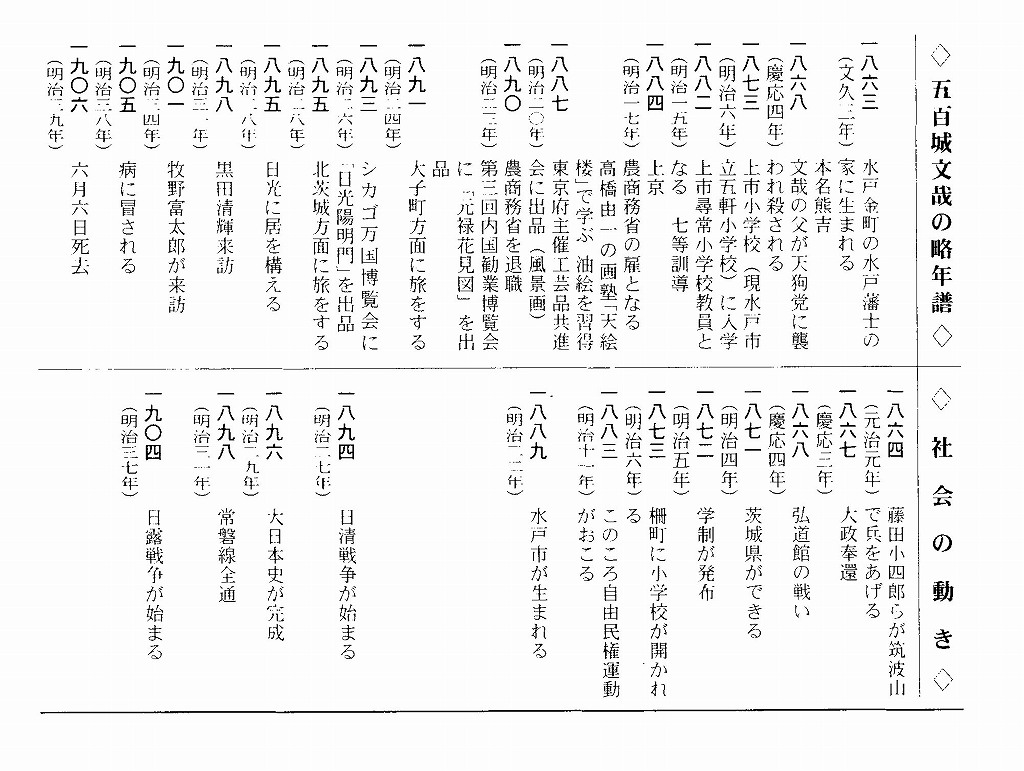 ◇五百城文哉の略年譜◇
一八六三 水戸金町の水戸藩士の
(文久三年) 家に生まれる
本名熊吉
一八六八 文哉の父が天狗党に襲
(慶応四年) われ殺される
一八七三 上市小学校(現水戸市
(明治六年) 立五軒小学校)に入学
一八八二 上市尋常小学校教員と
(明治一五年) なる 七等訓導
一八八四 上京
(明治一七年) 農商務省の雇となる
高橋由一の画塾「天絵
楼」で学ぶ 油絵を習得
一八八七 東京府主催工芸品共進
(明治二〇年) 会に出品(風景画)
一八九〇 農商務省を退職
(明治二三年) 第三回内国勧業博覧会
に「元禄花見図」を出
品
一八九一 大子町方面に旅をする
(明治二四年)
一八九三 シカゴ万国博覧会に
(明治二六年) 「日光陽明門」を出品
一八九五 北茨城方面に旅をする
(明治二八年)
一八九五 日光に居を構える
(明治二八年)
一八九八 黒田清輝来訪
(明治三一年)
一九〇一 牧野富太郎が来訪
(明治三四年)
一九〇五 病に冒される
(明治三八年)
一九〇六 六月六日死去
(明治三九年)
◇社会の動き◇
一八六四 藤田小四郎らが筑波山
(元治元年) で兵をあげる
一八六七 大政奉還
(慶応三年)
一八六八 弘道館の戦い
(慶応四年)
一八七一 茨城県ができる
(明治四年)
一八七二 学制が発布
(明治五年)
一八七三 柵町に小学校が開かれ
(明治六年) る
一八八三 このころ自由民権運動
(明治十一年) がおこる
一八八九 水戸市が生まれる
(明治二二年)
一八九四 日清戦争が始まる
(明治二七年)
一八九六 大日本史が完成
(明治二九年)
一八九八 常磐線全通
(明治三一年)
一九〇四 日露戦争が始まる
(明治三七年)